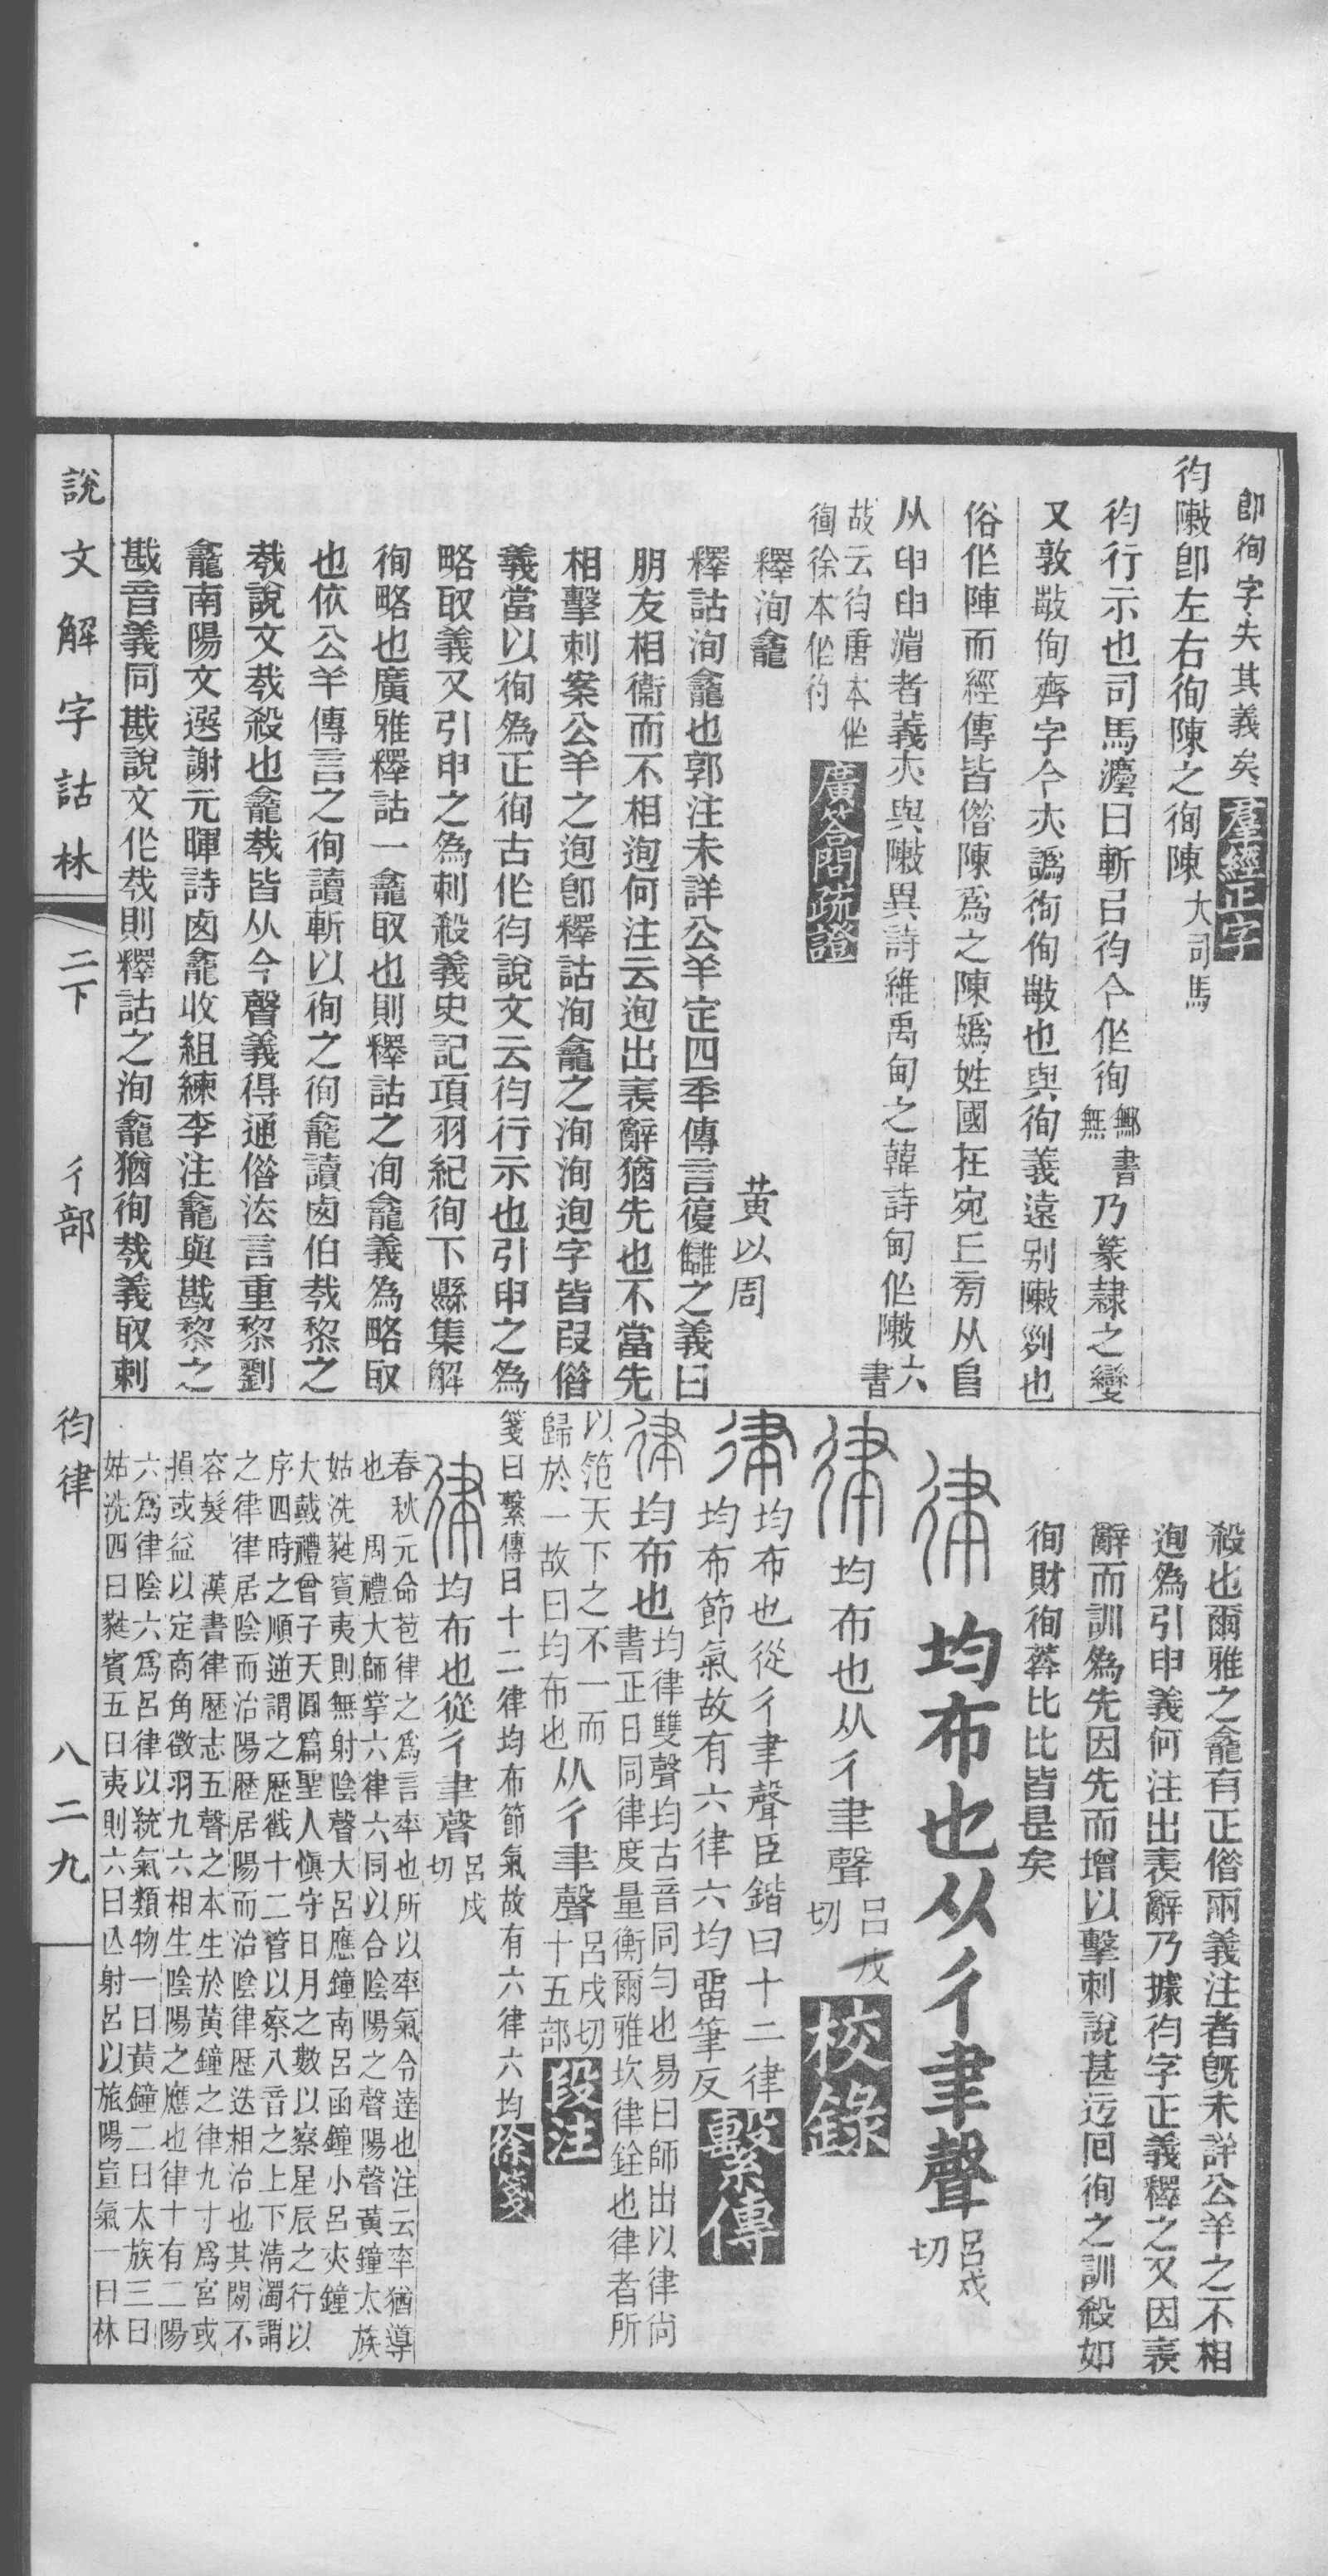 卽徇字失其義矣羣經正字
㣘敶卽左右徇陳之徇陳大司馬
㣘行示也司馬灋曰斬㠯㣘今㑅徇鄦書無乃篆隸之變
又敦㪤侚齊字今亦譌徇侚㪤也與徇義遠别敶𠛱也
俗㑅陣而經傳皆偺陳爲之陳嬀姓國在宛丘㫄从𨸏
从申申𣸈者義亦與敶異詩維禹甸之韓詩甸㑅敶六書
故云㣘唐本㑅徇徐本㑅㣘廣答問疏證
釋洵龕
黃以周
釋詁洵龕也郭注未詳公羊定四年傳言復讎之義曰
朋友相衞而不相迿何注云迿出表辭猶先也不當先
相擊刺案公羊之迿卽釋詁洵龕之洵洵迿字皆叚偺
義當以徇爲正徇古㑅㣘說文云㣘行示也引申之爲
略取義又引申之爲刺殺義史記項羽紀徇下縣集解
徇略也廣雅釋詁一龕取也則釋詁之洵龕義爲略取
也依公羊傳言之徇讀斬以徇之徇龕讀㢴伯㦰黎之
㦰說文㦰殺也龕㦰皆从今聲義得通偺法言重黎劉
龕南陽文選謝元暉詩西龕收組練李注龕與戡黎之
戡音義同戡說文㑅㦰則釋詁之洵龕猶徇㦰義取刺
殺也爾雅之龕有正偺兩義注者旣未詳公羊之不相
迿爲引申義何注出表辭乃據㣘字正義釋之又因表
辭而訓爲先因先而增以擊刺說甚迂回徇之訓殺如
徇財徇葬比比皆是矣
律 均布也从彳聿聲呂戌切
律 均布也从彳聿聲呂戌切校錄
律 均布也從彳聿聲臣鍇曰十二律
均布節氣故有六律六均畱筆反繫傳
律 均布也均律雙聲均古音同勻也易曰師出以律尙
書正日同律度量衡爾雅坎律銓也律者所
以笵天下之不一而
歸於一故曰均布也从彳聿聲呂戌切十五部段注
箋曰繫傳曰十二律均布節氣故有六律六均徐箋
律 均布也從彳聿聲呂戌切
春秋元命苞律之爲言率也所以率氣令達也注云率猶導
也 周禮大師掌六律六同以合陰陽之聲陽聲黃鐘太族
姑洗蕤賓夷則無射陰聲大呂應鐘南呂函鐘小呂夾鐘
大戴禮曾子天圓篇聖人愼守日月之數以察星辰之行以
序四時之順逆謂之歷截十二管以察八音之上下淸濁謂
之律律居陰而治陽歷居陽而治陰律歷迭相治也其閒不
容髮 漢書律歷志五聲之本生於黃鐘之律九寸爲宮或
損或益以定商角徵羽九六相生陰陽之應也律十有二陽
六爲律陰六爲呂律以統氣類物一曰黃鐘二曰太族三曰
姑洗四曰蕤賓五曰夷則六曰亾射呂以旅陽宣氣一曰林
說文解字詁林 二下 彳部 㣘律 八二九